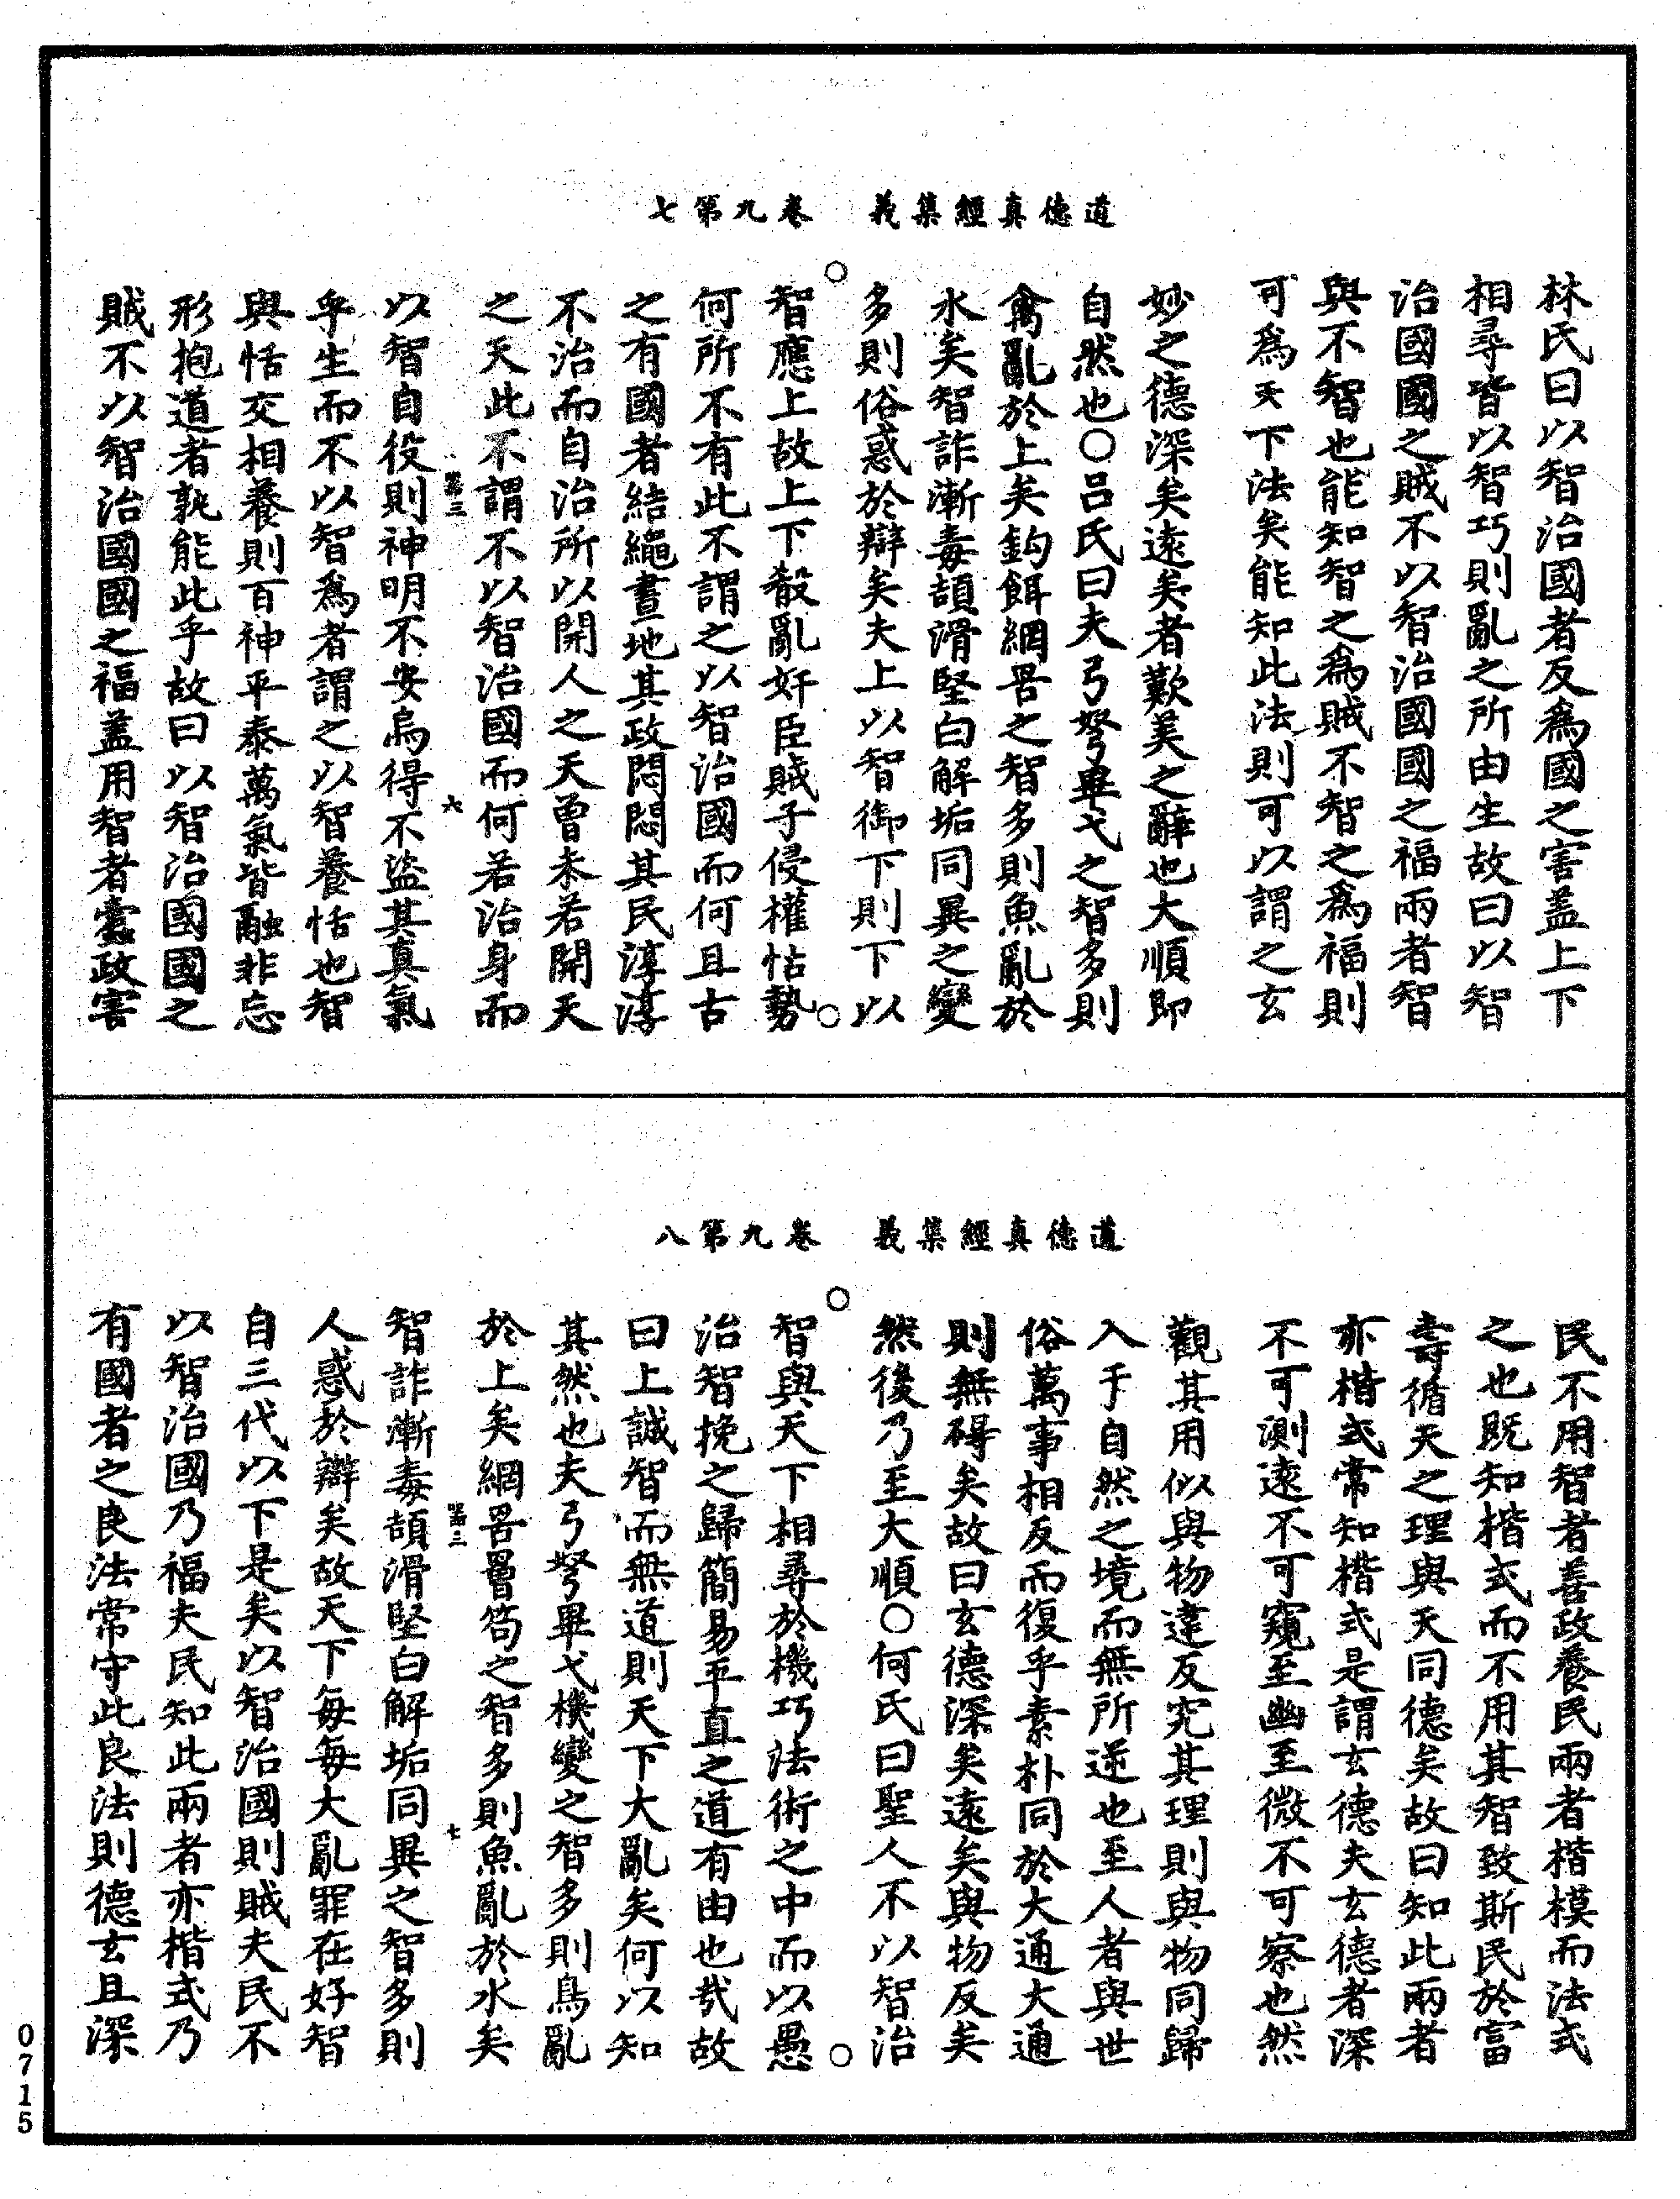 道德真經集義　卷九第七
林氏曰以智治國者反爲國之害蓋上下
相尋皆以智巧則亂之所由生故曰以智
治國國之賊不以智治國國之福兩者智
與不智也能知智之爲賊不智之爲福則
可爲天下法矣能知此法則可以謂之玄
妙之德深矣遠矣者歎美之辭也大順即
自然也○呂氏曰夫弓弩畢弋之智多則
禽亂於上矣鈎餌網罟之智多則魚亂於
水矣智詐漸毒頡滑堅白解垢同異之變
多則俗惑於辯矣夫上以智御下則下以
智應上故上下殽亂奸臣賊子侵權怙勢
何所不有此不謂之以智治國而何且古
之有國者結繩畫地其政悶悶其民淳淳
不治而自治所以開人之天曾未若開天
之天此不謂不以智治國而何若治身而
器三　六
以智自役則神明不安烏得不盜其真氣
乎生而不以智爲者謂之以智養恬也智
與恬交相養則百神平泰萬氣皆融非忘
形抱道者孰能此乎故曰以智治國國之
賊不以智治國國之福蓋用智者蠹政害
道德真經集義　卷九第八
民不用智者善政養民兩者楷模而法式
之也既知楷式而不用其智致斯民於富
壽循天之理與天同德矣故曰知此兩者
亦楷式常知楷式是謂玄德夫玄德者深
不可測遠不可窺至幽至微不可察也然
觀其用似與物違反究其理則與物同歸
入于自然之境而無所逆也至人者與世
俗萬事相反而復乎素朴同於大通大通
則無礙矣故曰玄德深矣遠矣與物反矣
然後乃至大順○何氏曰聖人不以智治
智與天下相尋於機巧法術之中而以愚
治智挽之歸簡易平直之道有由也哉故
曰上誠智而無道則天下大亂矣何以知
其然也夫弓弩畢弋機變之智多則鳥亂
於上矣網罟罾笱之智多則魚亂於水矣
器三　七
智詐漸毒頡滑堅白解垢同異之智多則
人惑於辯矣故天下每每大亂罪在好智
自三代以下是矣以智治國則賊夫民不
以智治國乃福夫民知此兩者亦楷式乃
有國者之良法常守此良法則德玄且深
0715